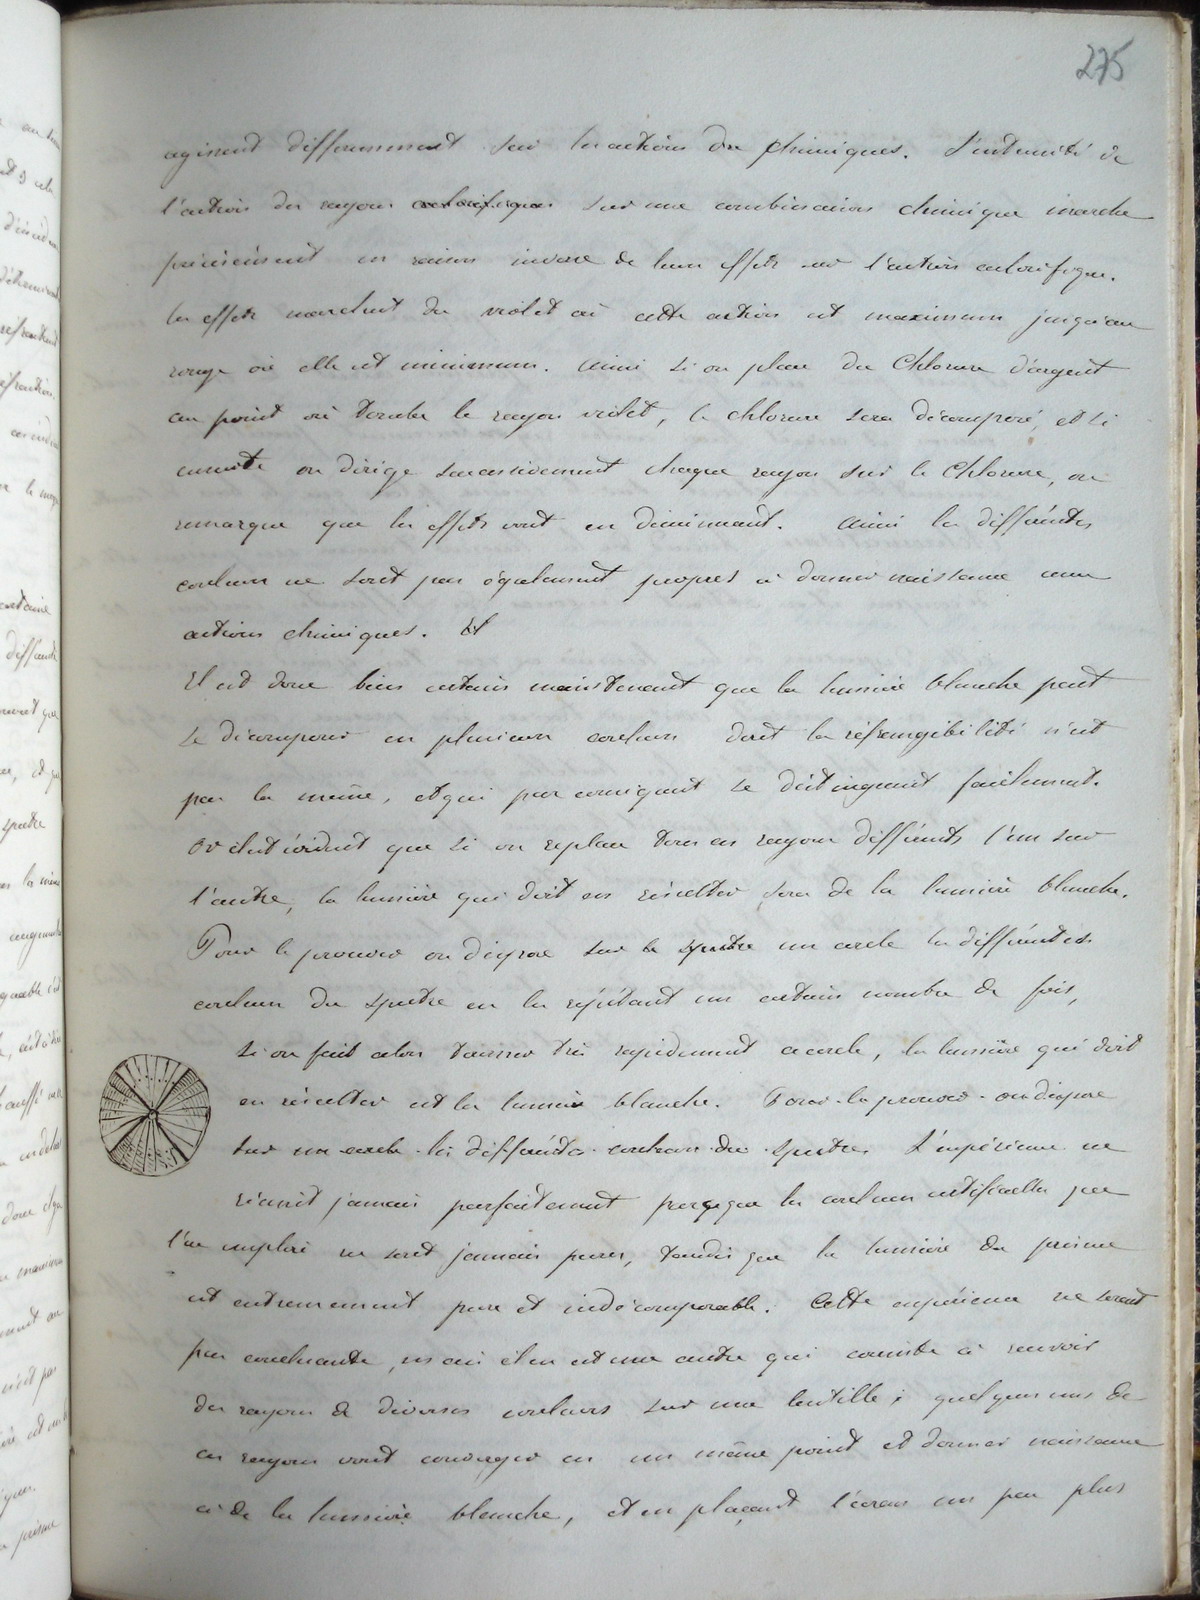 275
agissent différemment sur les actions chimiques. L'intensité de
l'action des rayons calorifiques sur une combinaison chimique marche
précisément en raison inverse de leurs effets sur l'action calorifique.
les effets marchent du violet où cette action est maximum jusqu'au
rouge où elle est minimum. Ainsi si on place du Chlorure d'argent
au point où tombe le rayon violet, le chlorure sera décomposé, et si
ensuite on dirige successivement chaque rayon sur le Chlorure, on
remarque que les effets vont en diminuant. Ainsi les différentes
couleurs ne sont pas également propres à donner naissance aux
actions chimiques. Il
Il est donc bien certain maintenant que la lumière blanche peut
se décomposer en plusieurs couleurs dont la réfrangibilité n'est
pas la même, et qui par conséquent se distinguent facilement.
Or il est évident que si on replace tous ces rayons différents l'un sur
l'autre, la lumière qui doit en résulter sera de la lumière blanche.
Pour le prouver on dispose sur le spectre un cercle les différentes
couleurs du spectre en les répétant un certain nombre de fois,
si on fait alors tourner très rapidement ce cercle, la lumière qui doit
en résulter est la lumière blanche. Pour le prouver on dispose
sur un cercle les différentes couleurs du spectre. L'expérience ne
réussit jamais parfaitement parceque les couleurs artificielles que
l'on emploie ne sont jamais pures, tandis que la lumière du prisme
est extremement pure et indécomposable. Cette expérience ne serait
pas concluante, mais il en est une autre qui consiste à recevoir
des rayons de diverses couleurs sur une lentille; quelques uns de
ces rayons vont converger en un même point et donner naissance
à de la lumière blanche, et en plaçant l'écran un peu plus